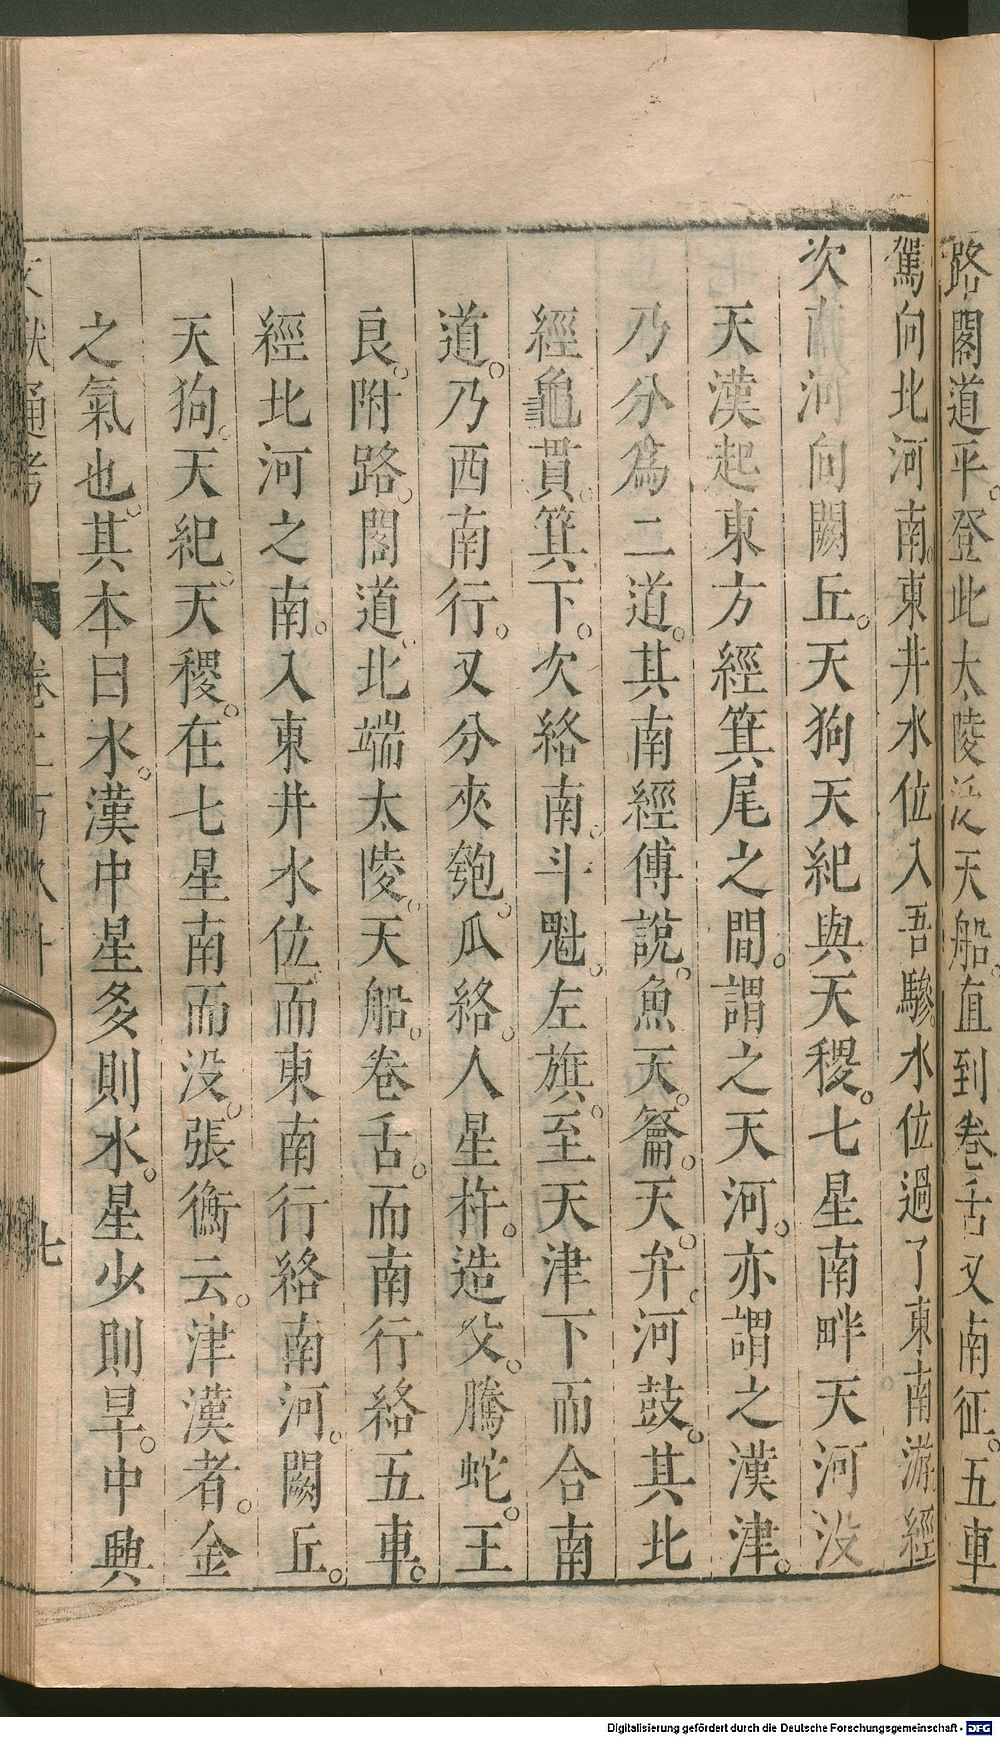 路閣道平。登此太陵泛天船。直到卷舌又南征。五車
駕向北河南。東井水位入吾驂。水位過了東南游。經
次南河向闕丘。天狗天紀與天稷。七星南畔天河没
天漢起東方經箕尾之間。謂之天河。亦謂之漢津。
乃分爲二道。其南經傅說。魚天。籥。天。弁。河鼓。其北
經龜。貫。箕下。次絡南。斗魁。左旗。至天津下而合南
道。乃西南行。又分夾匏。瓜絡。人星杵。造父。騰蛇。王
良。附路。閣道。北端太陵。天船。卷舌。而南行絡五車。
經北河之南。入東井水位。而東南行絡南河。闕丘。
天狗。天紀。天稷。在七星南而没。張衡云。津漢者。金
之氣也。其本曰水。漢中星多則水。星少則旱。中興
文獻通考 卷二百八十 七
Digitalisierung gefördert durch die Deutsche Forschungsgemeinschaft - DFG